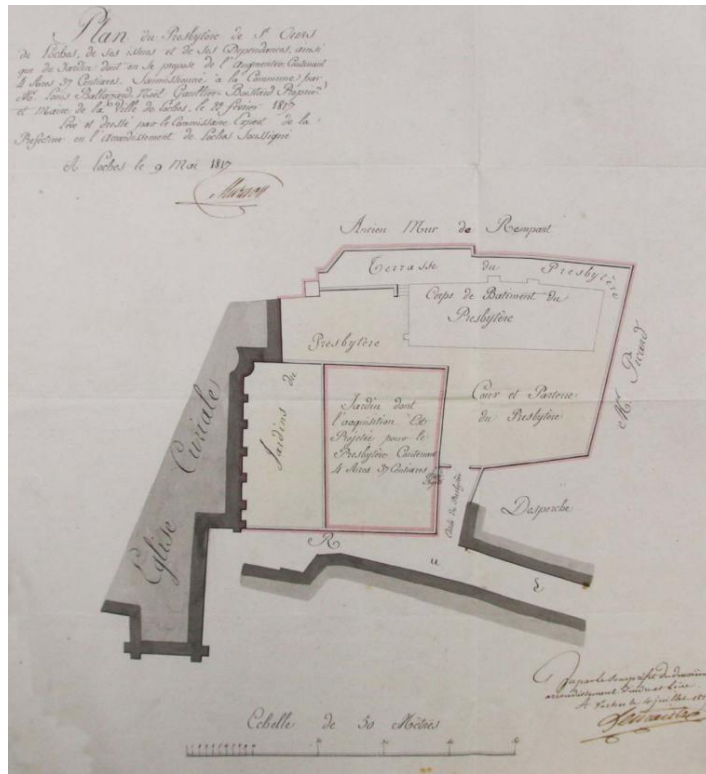 Plan du Presbytère de St Ours
de Loches, de ses issues et de ses Dependances, ainsi
que du Jardin dont on se propose de l'augmenter Contenant
4 Ares 37 Centiares. Soumissionné à la Commune par
Mr. Louis Baltazard Noël Gaulthier-Boistard Proprié
et Maire de la Ville de Loches, le 22 fevrier 1817
Levé et dressé par le Commissaire Expert de la
Prefecture en l'arrondissement de Loches Soussigné
A Loches le 9 Mai 1817
Ancien Mur de Rempart
Terrasse du Presbytère
Corps de Batiment du
Presbytère
Presbytère
Jardins du
Jardin dont
l'acquisition Est
Projetée pour le
Presbytère Contenant
4 Ares 37 Centiares
Cour et Parterre
du Presbytère
Mr.
Desperche
Eglise Curiale
R u E
Echelle de 50 Mètres